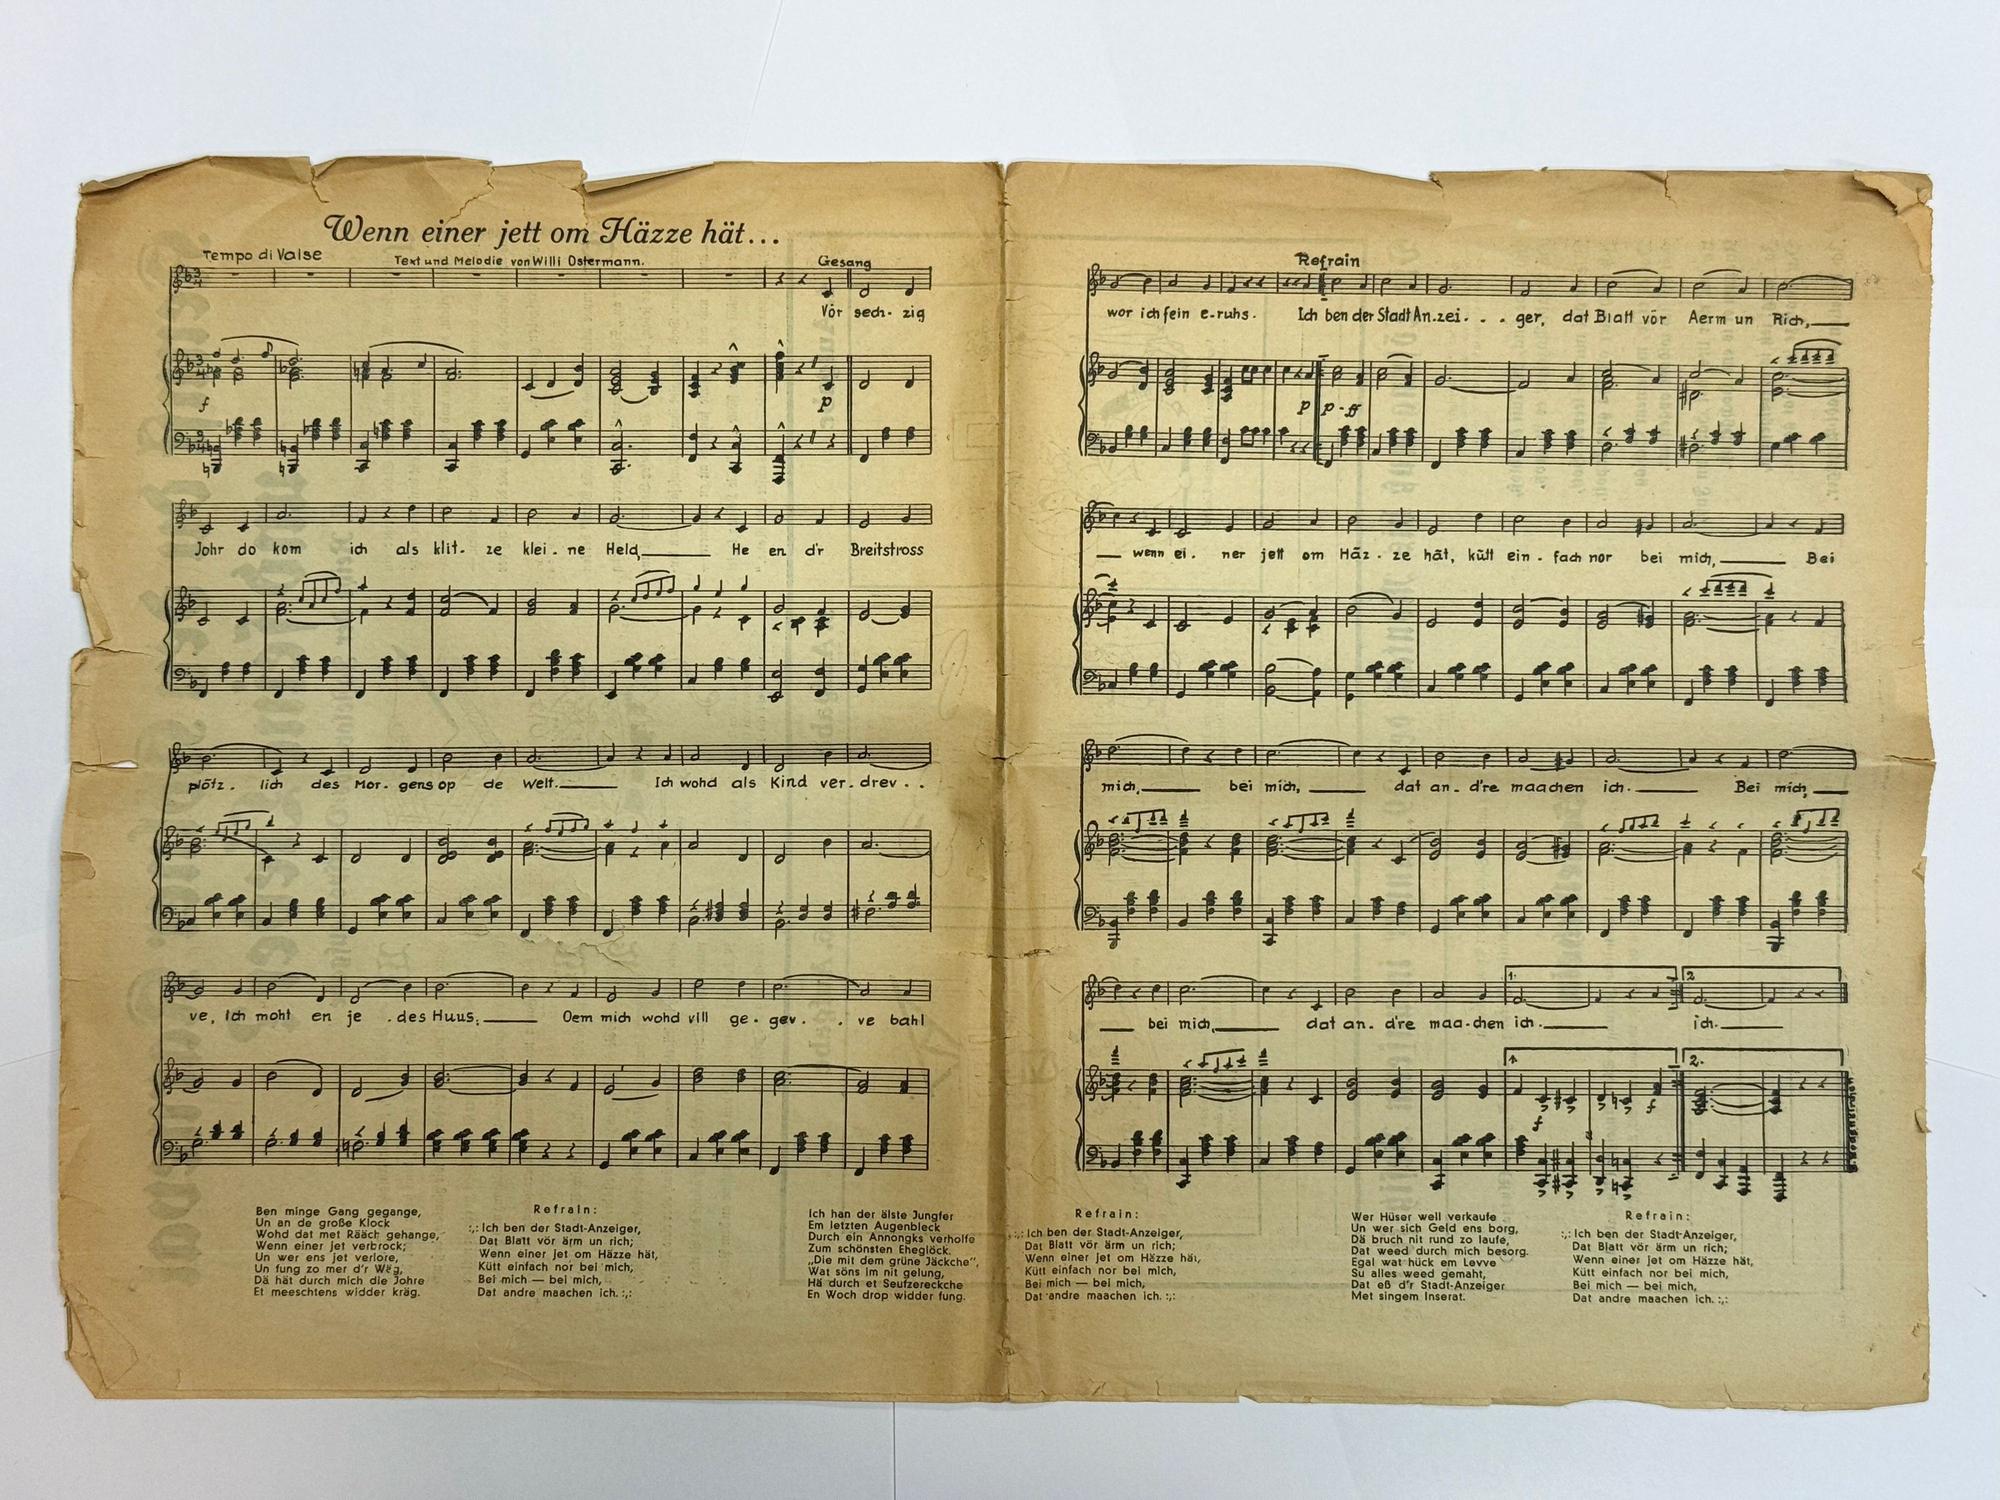 Wenn einer jett om Häzze hät...
Tempo di Valse
Text und Melodie von Willi Ostermann.
Gesang
Vör sech- zig
f
p
Johr do kom ich als klit- ze klei- ne Held, He en d'r Breitstross
plötz- lich des Mor- gens op de Welt. Ich wohd als Kind ver- drev . .
ve, Ich moht en je . des Huus; Oem mich wohd vill ge- gev . . ve bahl
Ben minge Gang gegange,
Un an de große Klock
Wohd dat met Rääch gehange,
Wenn einer jet verbrock;
Un wer ens jet verlore,
Un fung zo mer d'r Wëg,
Dä hät durch mich die Johre
Et meeschtens widder kräg.
Refrain:
:,: Ich ben der Stadt-Anzeiger,
Dat Blatt vör ärm un rich;
Wenn einer jet om Häzze hät,
Kütt einfach nor bei mich,
Bei mich — bei mich,
Dat andre maachen ich. :,:
Ich han der älste Jungfer
Em letzten Augenbleck
Durch ein Annongks verholfe
Zum schönsten Eheglöck.
„Die mit dem grüne Jäckche",
Wat söns im nit gelung,
Hä durch et Seufzereckche
En Woch drop widder fung.
Refrain
wor ich fein e-ruhs. Ich ben der Stadt An-zei- . . ger, dat Blatt vör Aerm un Rich,
p p-ff
wenn ei- ner jett om Häz- ze hät, kütt ein- fach nor bei mich, Bei
mich, bei mich, dat an- d're maachen ich. Bei mich,
bei mich, dat an- d're maa-chen ich. ich.
1. 2.
2.
f f
Refrain:
:,: Ich ben der Stadt-Anzeiger,
Dat Blatt vör ärm un rich;
Wenn einer jet om Häzze hät,
Kütt einfach nor bei mich,
Bei mich — bei mich,
Dat andre maachen ich. :,:
Wer Hüser well verkaufe
Un wer sich Geld ens borg,
Dä bruch nit rund zo laufe,
Dat weed durch mich besorg.
Egal wat hück em Levve
Su alles weed gemaht,
Dat eß d'r Stadt-Anzeiger
Met singem Inserat.
Refrain:
:,: Ich ben der Stadt-Anzeiger,
Dat Blatt vör ärm un rich;
Wenn einer jet om Häzze hät,
Kütt einfach nor bei mich,
Bei mich — bei mich,
Dat andre maachen ich. :,: